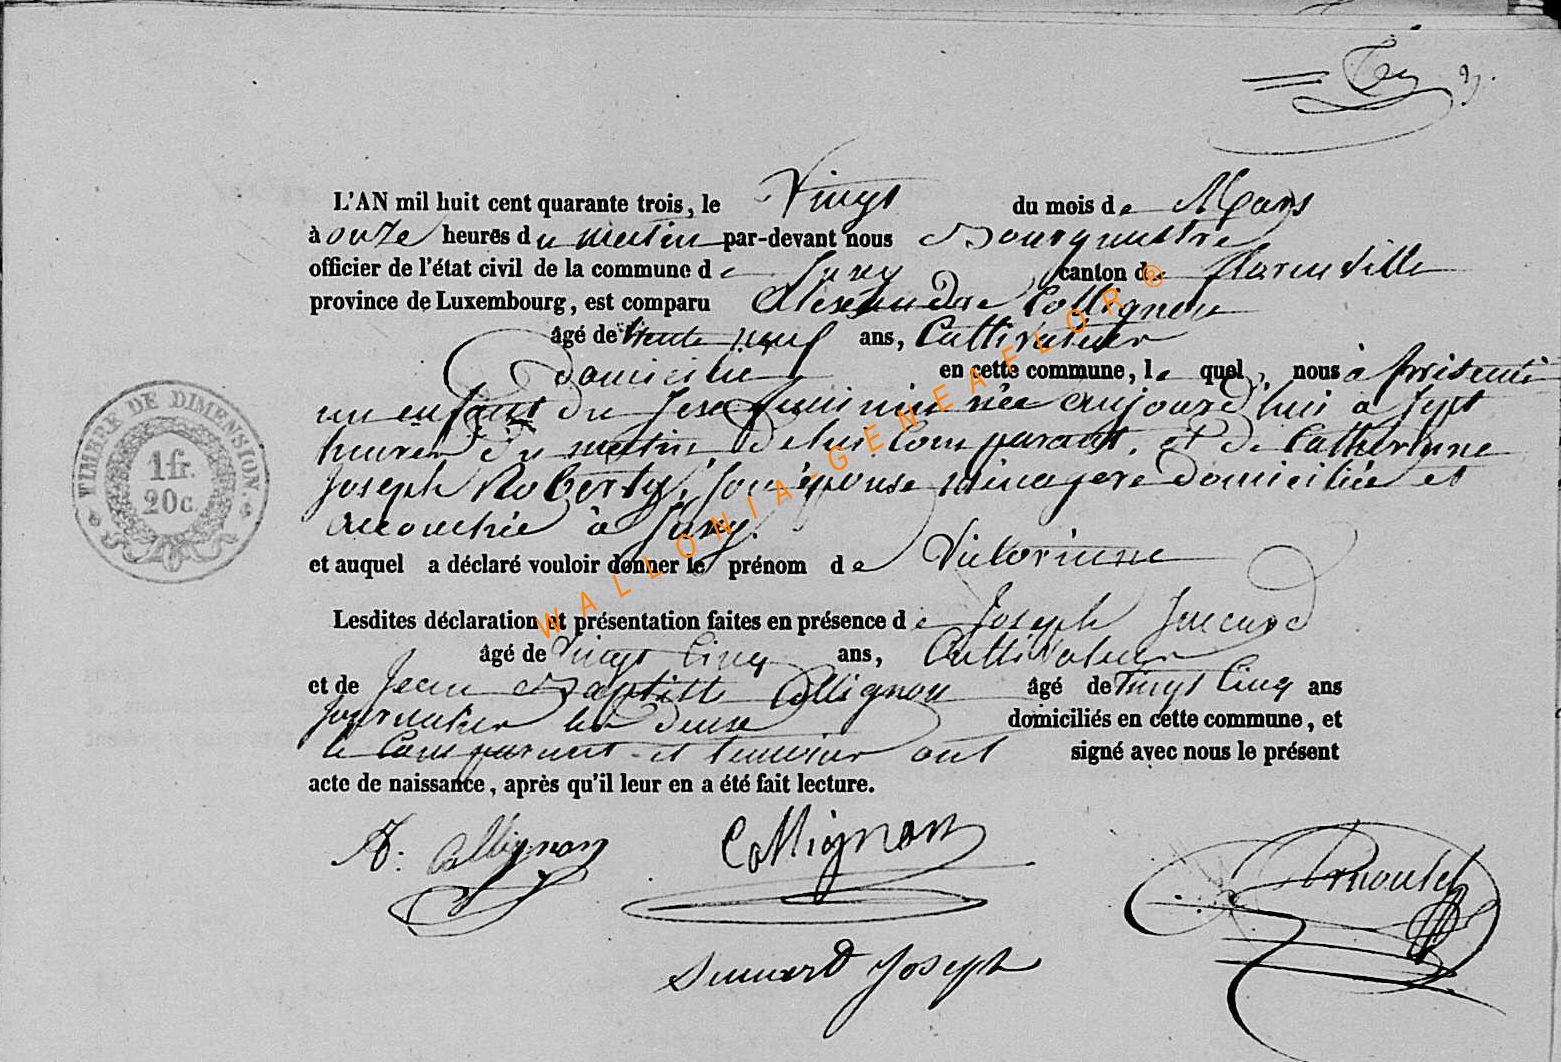 L'AN mil huit cent quarante trois, le Vingt du mois de Mars
à onze heures du matin par-devant nous Bourgmestre
officier de l'état civil de la commune de canton de florenville
province de Luxembourg, est comparu Alexandre Collignon
âgé de trente neuf ans, Cultivateur
domicilié en cette commune, le quel nous à présenté
un enfant du sexe feminin née aujourd'hui à sept
heures du matin de lui Comparant, et de Catherinne
Joseph Roberty, son épouse ménagere domiciliée et
accouchée à
et auquel a déclaré vouloir donner le prénom de Victorinne
Lesdites déclaration et présentation faites en présence de Joseph
âgé de Vingt Cinq ans, Cultivateur
et de Jean Baptiste Collignon âgé de Vingt Cinq ans
les deux domiciliés en cette commune, et
le Comparant et temoins ont signé avec nous le présent
acte de naissance, après qu'il leur en a été fait lecture.
A. Collignon Collignon Arnoulet
Joseph
TIMBRE DE DIMENSION.
1fr.
20c.
WALLONIA-GENEAFLOR®